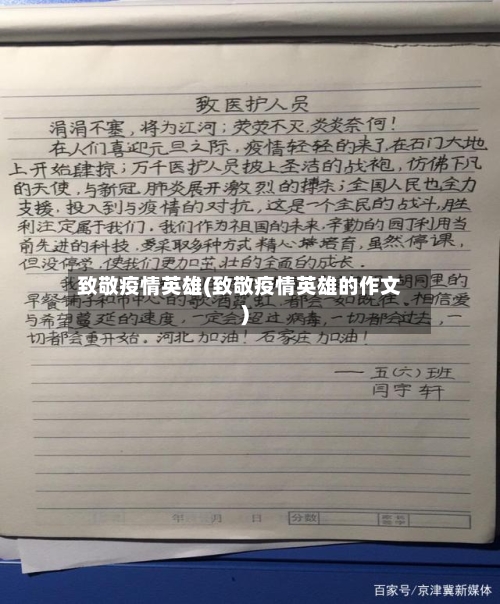 致医护人员
涓涓不塞，将为江河；荧荧不灭，炎炎奈何！
在人们喜迎元旦之际，疫情轻轻的来了，在石门大地
上开始肆掠；万千医护人员披上圣洁的战袍，仿佛下凡
的天使，与新冠肺炎展开激烈的搏杀；全国人民也全力
支援，投入到与疫情的对抗，这是一个全民的战斗，胜
利注定属于我们。我们作为祖国的未来，辛勤的园丁利用当
前先进的科技，采取多种方式精心培育，虽然停课，
但没停学，使我们更加茁壮的全面的成长。
致敬疫情英雄(致敬疫情英雄的作文
)
我 胡同里的
早餐铺子和市中心的 都会一如既往。相信爱
与希望蔓延的速度，一定会超过病毒，一切都会过去，一
切都会重开始。河北加油！石家庄加油！
——五(六)班
闫宇轩
年 月 日 分数 家长签字
百家号/京津冀新媒体